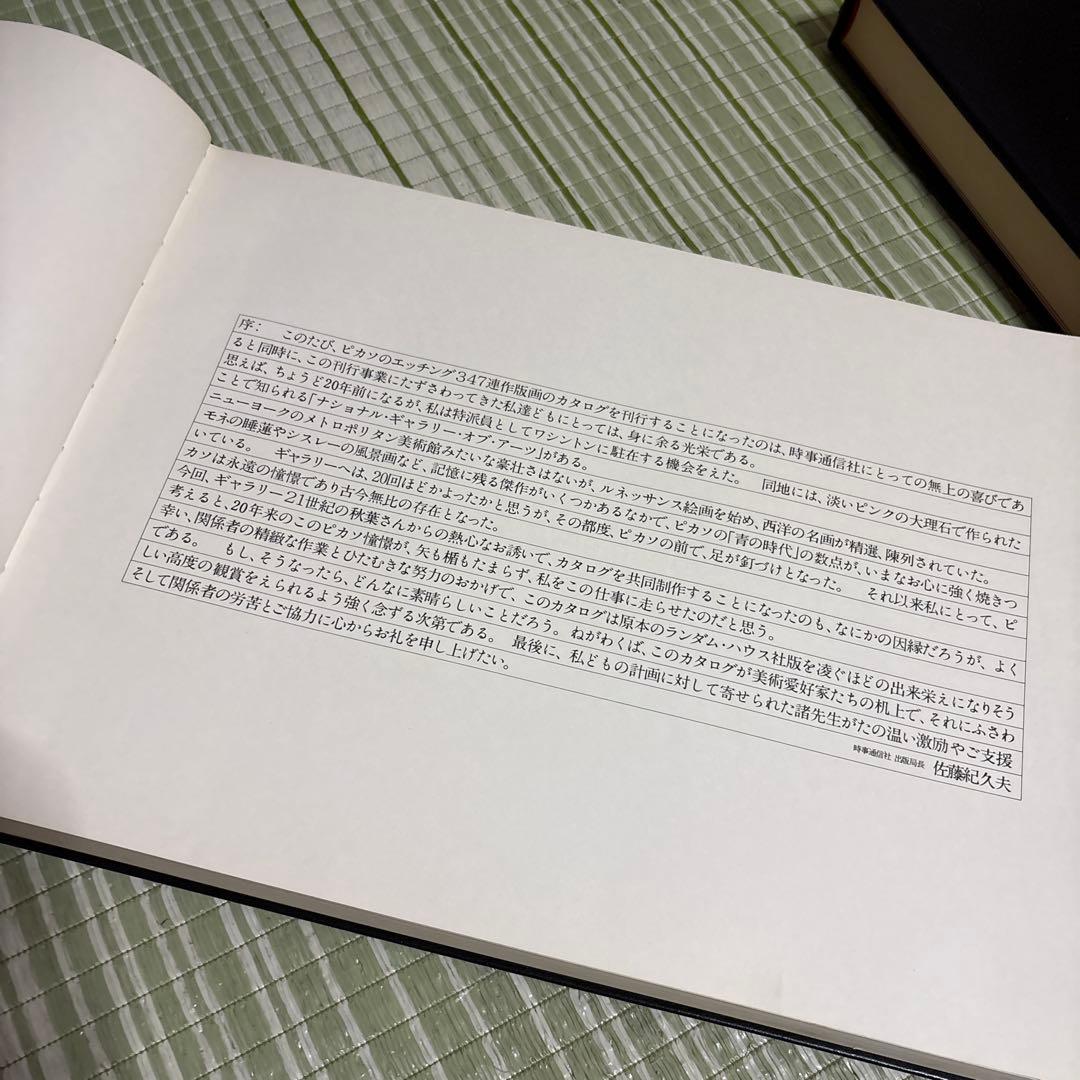 序：　このたび、ピカソのエッチング347連作版画のカタログを刊行することになったのは、時事通信社にとっての無上の喜びであ
ると同時に、この刊行事業にたずさわってきた私達どもにとっては、身に余る光栄である。
思えば、ちょうど20年前になるが、私は特派員としてワシントンに駐在する機会をえた。　同地には、淡いピンクの大理石で作られた
ことで知られる「ナショナル・ギャラリー・オブ・アーツ」がある。
ニューヨークのメトロポリタン美術館みたいな豪壮さはないが、ルネッサンス絵画を始め、西洋の名画が精選、陳列されていた。
モネの睡蓮やシスレーの風景画など、記憶に残る傑作がいくつかあるなかで、ピカソの「青の時代」の数点が、いまなお心に強く焼きつ
いている。　ギャラリーへは、20回ほどかよったかと思うが、その都度、ピカソの前で、足が釘づけとなった。　それ以来私にとって、ピ
カソは永遠の憧憬であり古今無比の存在となった。
今回、ギャラリー21世紀の秋葉さんからの熱心なお誘いで、カタログを共同制作することになったのも、なにかの因縁だろうが、よく
考えると、20年来のこのピカソ憧憬が、矢も楯もたまらず、私をこの仕事に走らせたのだと思う。
幸い、関係者の精緻な作業とひたむきな努力のおかげで、このカタログは原本のランダム・ハウス社版を凌ぐほどの出来栄えになりそう
である。　もし、そうなったら、どんなに素晴らしいことだろう。ねがわくば、このカタログが美術愛好家たちの机上で、それにふさわ
しい高度の観賞をえられるよう強く念ずる次第である。　最後に、私どもの計画に対して寄せられた諸先生がたの温い激励やご支援
そして関係者の労苦とご協力に心からお礼を申し上げたい。
時事通信社 出版局長　佐藤紀久夫